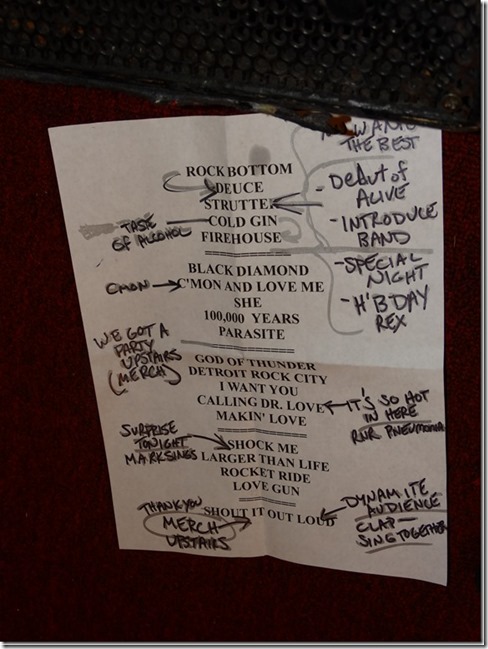 WANT
THE BEST
ROCK BOTTOM
DEUCE
STRUTTER
COLD GIN
FIREHOUSE
- DEBUT OF
ALIVE
- INTRODUCE
BAND
- SPECIAL
NIGHT
- H'B DAY
REX
TASE
OF ALCOHOL
BLACK DIAMOND
C'MON AND LOVE ME
SHE
100,000 YEARS
PARASITE
CMON
WE GOT A
PARTY
UPSTAIRS
(MERCH)
GOD OF THUNDER
DETROIT ROCK CITY
I WANT YOU
CALLING DR. LOVE
MAKIN' LOVE
IT'S SO HOT
IN HERE
RNR PNEUMONIA
SURPRISE
TONIGHT
MARK SINGS
SHOCK ME
LARGER THAN LIFE
ROCKET RIDE
LOVE GUN
SHOUT IT OUT LOUD
THANK YOU
MERCH
UPSTAIRS
DYNAMITE
AUDIENCE
CLAP
SING TOGETHER